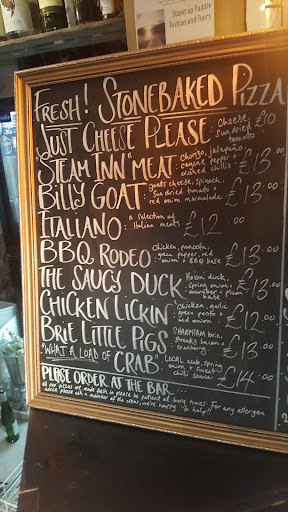 Stand up Paddle
Tuition and Tours
FRESH! STONEBAKED PIZZA
JUST CHEESE PLEASE: cheese, sun dried tomato £10
"STEAM INN" MEAT: chorizo, jalapeño, cayenne pepper + crushed chillis £13.00
BILLY GOAT: goats cheese, spinach, sun dried tomato + red onion marmalade £13.00
ITALIANO: a selection of Italian meats £12.00
BBQ RODEO: chicken, pancetta, green pepper, red onion + BBQ base £13.00
THE SAUCY DUCK: Hoisin duck, spring onion, cucumber + plum base £13.00
CHICKEN LICKIN: chicken, garlic green pesto + red onion £12.00
BRIE LITTLE PIGS: SHARPHAM brie, streaky bacon + cranberry £13.00
"WHAT A LOAD OF CRAB": LOCAL crab, spring onion + sweet chilli sauce £14.00
PLEASE ORDER AT THE BAR...
all our pizzas are made fresh so please be patient at busy times. For any allergen
advice please ask a member of the crew, we're happy to help!!